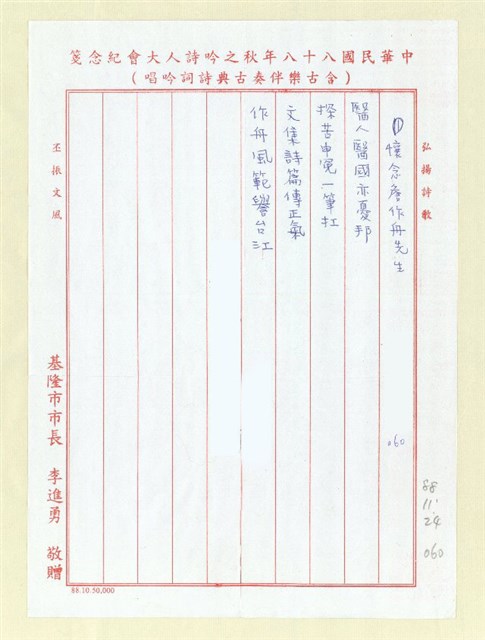 中華民國八十八年秋之吟詩人大會紀念箋
（含古樂伴奏古典詩詞吟唱）
弘揚詩教
(1)懷念詹作舟先生
醫人醫國亦憂邦
探苦申冤一筆扛
文集詩篇傳正氣
作舟風範譽台江
丕振文風
基隆市市長 李進勇 敬贈
060
88.
11.
24
060
88.10.50,000